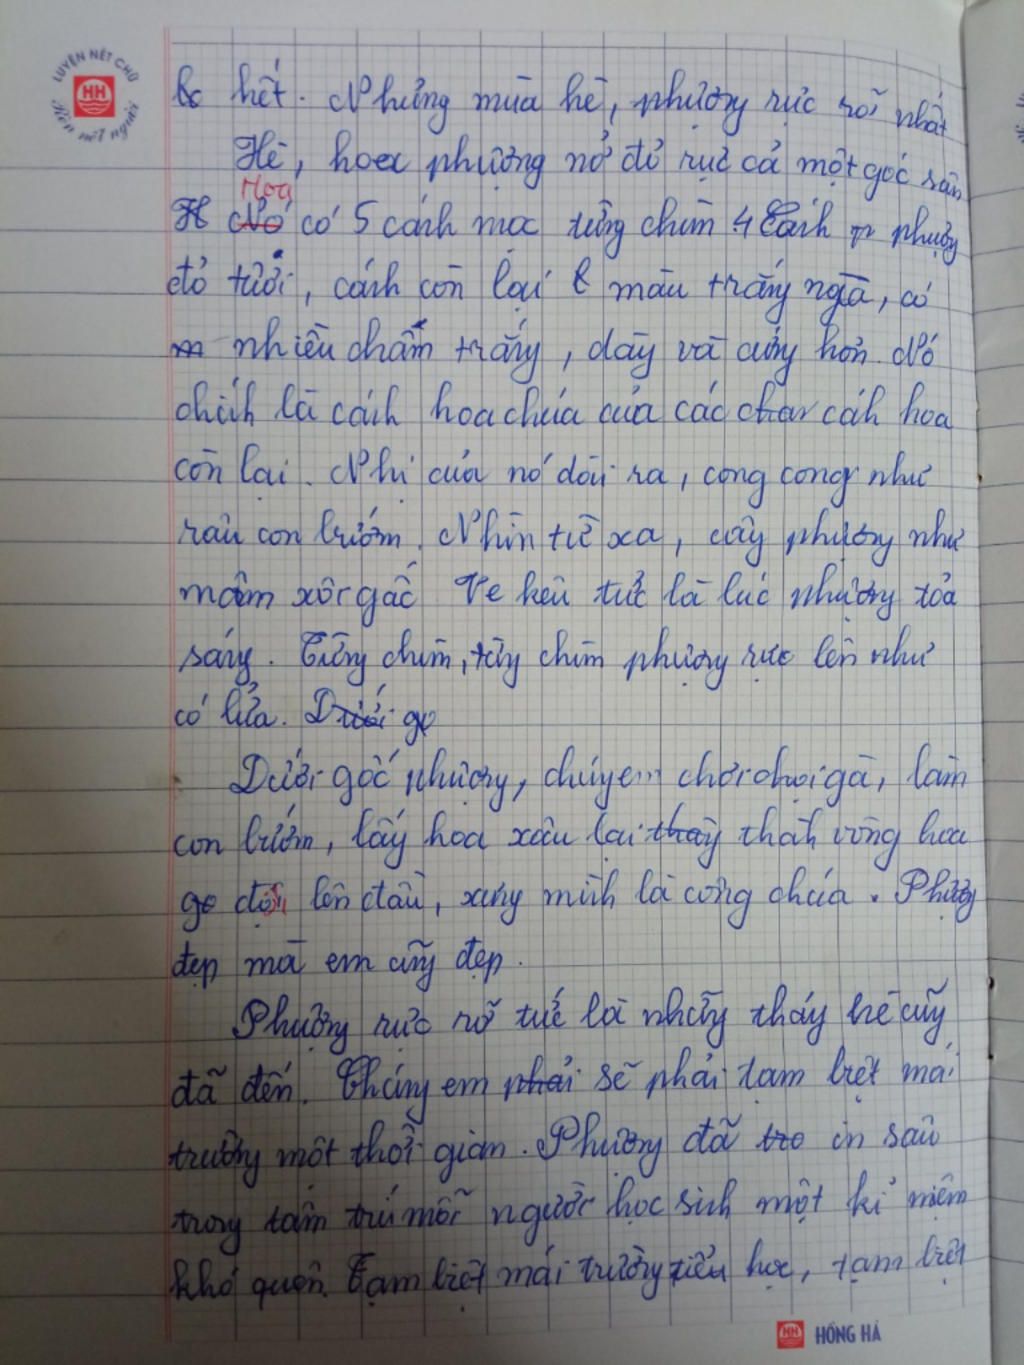 LUYỆN NÉT CHỮ
HH
Rèn nết người
hết. Nhưng mùa hè, phượng rực rỡ nhất
Hè, hoa phượng nở đỏ rực cả một góc sân
Hoa
Nó có 5 cánh mọc từng chùm 4 cánh phượng
đỏ tươi, cánh còn lại màu trắng ngà, có
nhiều chấm trắng, dày và cứng hơn. Nó
chính là cánh hoa chúa của các cánh hoa
còn lại. Nhị của nó dài ra, cong cong như
râu con bướm. Nhìn từ xa, cây phượng như
mâm xôi gấc Ve kêu tức là lúc phượng tỏa
sáng. Từng chùm, từng chùm phượng rực lên như
có lửa. Dưới gọ
Dưới gốc phượng, chúng em chơi chọi gà, làm
con bướm, lấy hoa xâu lại thàng thành vòng hoa
đội lên đầu, xưng mình là công chúa. Phượng
đẹp mà em cũng đẹp.
Phượng rực rỡ tức là những tháng hè cũng
đã đến. Chúng em phải sẽ phải tạm biệt mái
trường một thời gian. Phượng đã tro in sâu
trong tâm trí mỗi người học sinh một kỉ niệm
khó quên. Tạm biệt mái trường tiểu học, tạm biệt
HH HỒNG HÀ